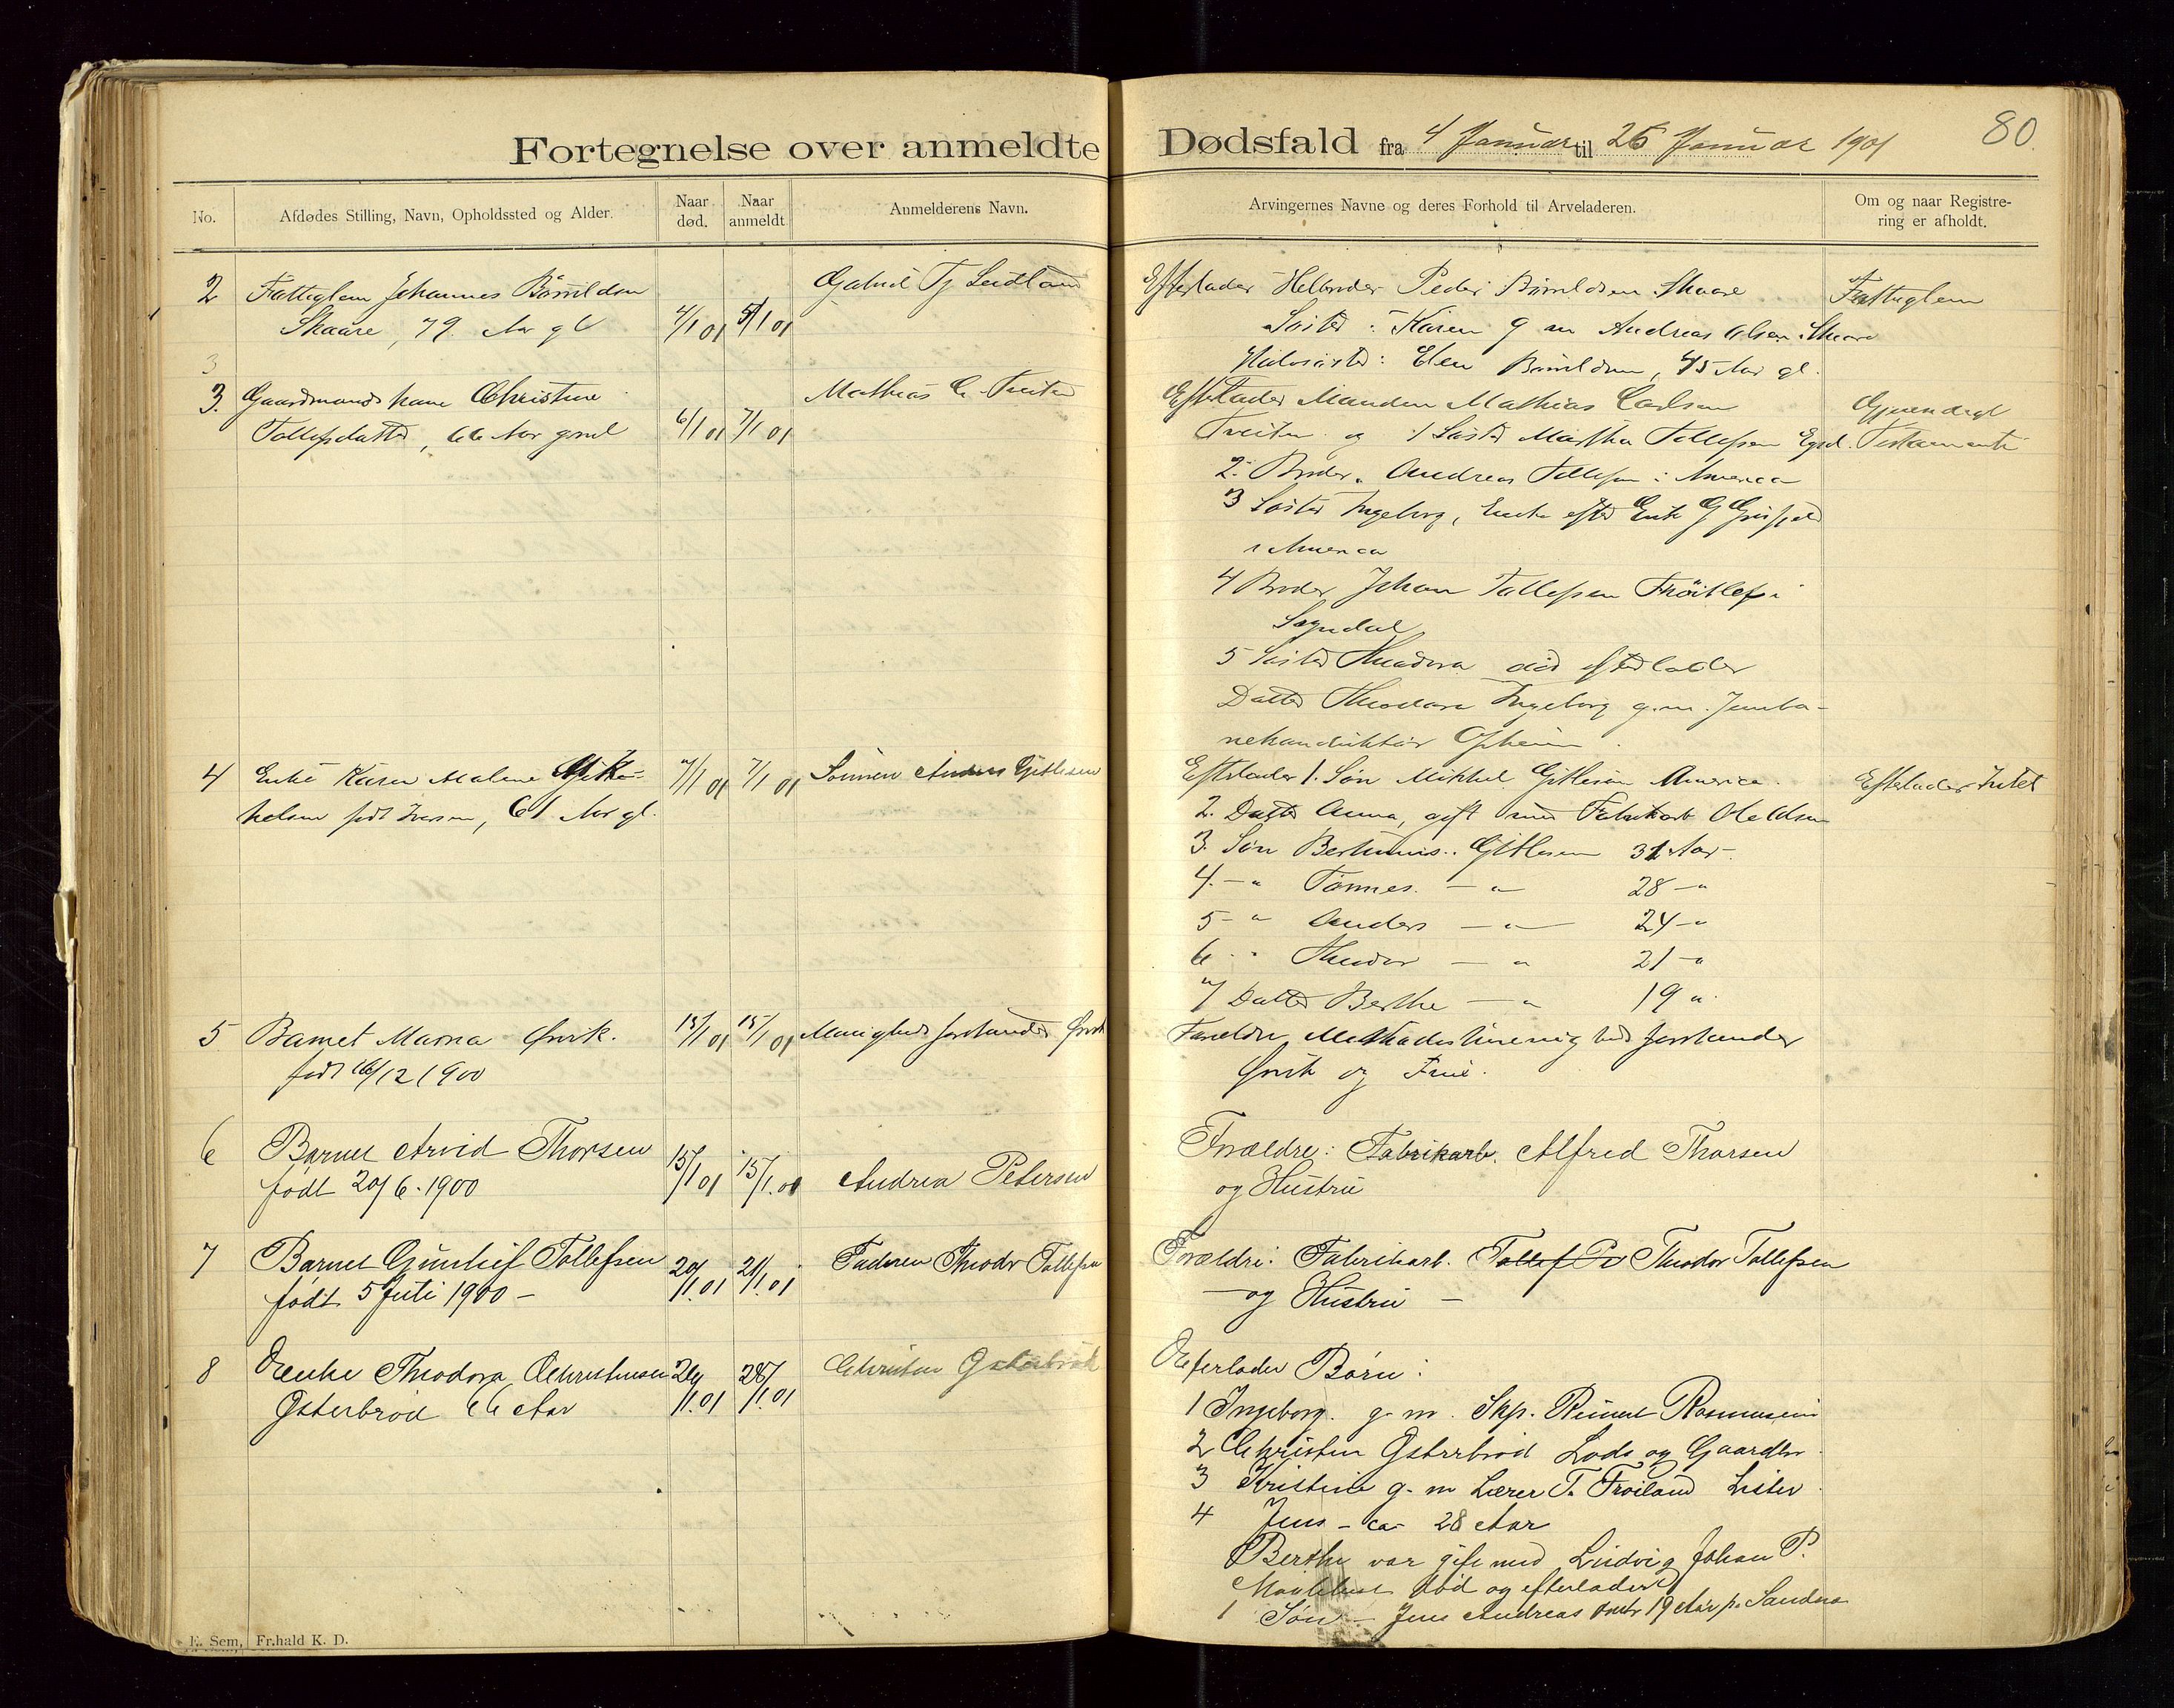 Fortegnelse over anmeldte Dødsfald fra 4 Januar til 26 Januar 1901
80.
No.
Afdødes Stilling, Navn, Opholdssted og Alder.
Naar død.
Naar anmeldt
Anmelderens Navn.
Arvingernes Navne og deres Forhold til Arveladeren.
Om og naar Registrering er afholdt.
2 Fattiglem Johannes
Skaare, 79 Aar gl
4/1 01 5/1 01
Gabriel Tj
Efterlader Helbroder Peder Skaare
Søster: Karen g m Andreas Olsen Skaare
Halvsøster: Elen 45 Aar gl.
Fattiglem
3
3. Gaardmandskone Christine
Tollefsdatter, 66 Aar gml
6/1 01 7/1 01
Mathias C. Treiten
Efterlader Manden Mathias Carlsen
Treiten og 1 Søster Martha Tollefsen Egsd.
2. Broder Andreas Tollefsen i America
3 Søster Ingeborg, Enke efter Erik G
i America
4 Broder Johan Tollefsen i
Sogndal
5 Søster Theodora død efterlader
Datter Theodora Ingeborg g.m. Jernba-
nekonduktør Opheim.
Gjensidigt
Testamente
4 Enke Karen Malene
født Iversen, 61 Aar gl.
7/1 01 7/1 01
Sønnen Anders Gitlesen
Efterlader 1. Søn Mikkel Gitlesen America.
2. Datter Anna, gift med Fabrikarb
3. Søn Gitlesen 31 Aar
4. - " Tönnes. - " 28 - "
5 - " Anders - " 24 - "
6 - " Theodor - " 21 - "
7 Datter Berthe - " 19 "
Efterlader Intet
5 Barnet Marna Ørvik.
født 16/12 1900
15/1 01 15/1 01
Menighedsforstander Ørvik
Forældre Methodistmenighedsforstander
Ørvik og Frue.
6 Barnet Arvid Thorsen
født 20/6 - 1900
15/1 01 15/1. 01
Andrea Petersen
Forældre: Fabrikarb. Alfred Thorsen
og Hustru
7 Barnet Gunleif Tollefsen
født 5 Juli 1900 -
20/1. 01 21/1. 01
Faderen Theodor Tollefsen
Forældre: Fabrikarb. Tollef Theodor Tollefsen
- og Hustru -
8 Enke Theodora Christensen
Østerbrød 66 Aar
1.01 28/1.01
Christen Østerbrød
Efterlader Børn:
1 Ingeborg. g. m. Skp. Reinert Rasmussen
2 Christen Østerbrød Lods og Gaardbr.
3 Kristine g. m Lærer T. Froiland Lister
4 Jens - ca 28 Aar
Berthe var gift med Ludvig Johan P.
død og efterlader
1 Søn - Jens Andreas 19 Aar p.
E. Sem, Fr.hald K. D.